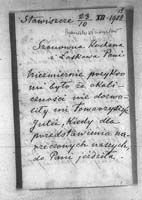 Stawiszcze 23/10 XII 1912
Szanowna Kochana
z Laskowa Pani
Niezmiernie przykro
mi było że okoli-
czności nie dozwo-
liły mi Towarzyszyć
Julci, Kiedy dla
przedstawienia na-
rzeczonych naszych,
do Pani jeździła.